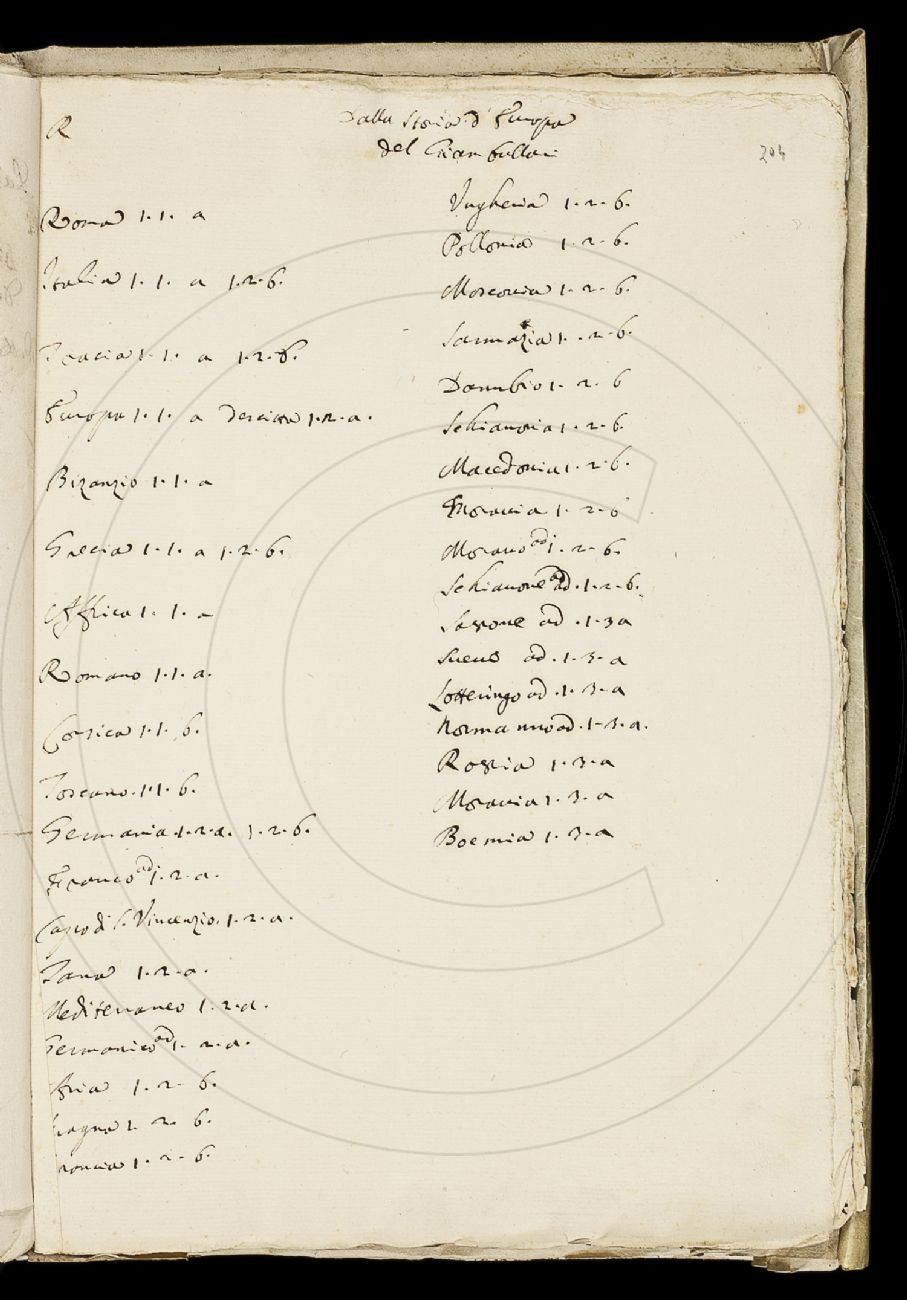 R
Dalla Storia d'Europa
del Giambullari
204
Roma 1. 1. a
Italia 1. 1. a 1. 2. b.
Tracia 1. 1. a 1. 2. b.
Europa 1. 1. a descritta 1. 2. a.
Bizanzio 1. 1. a
Grecia 1. 1. a 1. 2. b.
Affrica 1. 1. a
Romano 1. 1. a.
Corsica 1. 1. b.
Toscano. 1. 1. b.
Germania. 1. 2. a. 1. 2. b.
Franco ad 1. 2. a.
Capo di S. Vincenzio. 1. 2. a.
Tana 1. 2. a.
Mediterraneo 1. 2. a.
Germanico ad 1. 2. a.
1. 2. b.
1. 2. b.
1. 2. b.
Vngheria 1. 2. b.
Pollonia 1. 2. b.
Moscouia 1. 2. b.
Sarmazia 1. 2. b.
Danubio 1. 2. b
Schiauonia 1. 2. b.
Macedonia 1. 2. b.
Morauia 1. 2. b
Morauo ad 1. 2. b.
Schiauone ad. 1. 2. b.
Sassone ad. 1. 3 a
Sueuo ad. 1. 3. a
Lotteringo ad. 1. 3. a
Normanno ad. 1. 3. a.
Rossia 1. 3. a
Morauia 1. 3. a
Boemia 1. 3. a